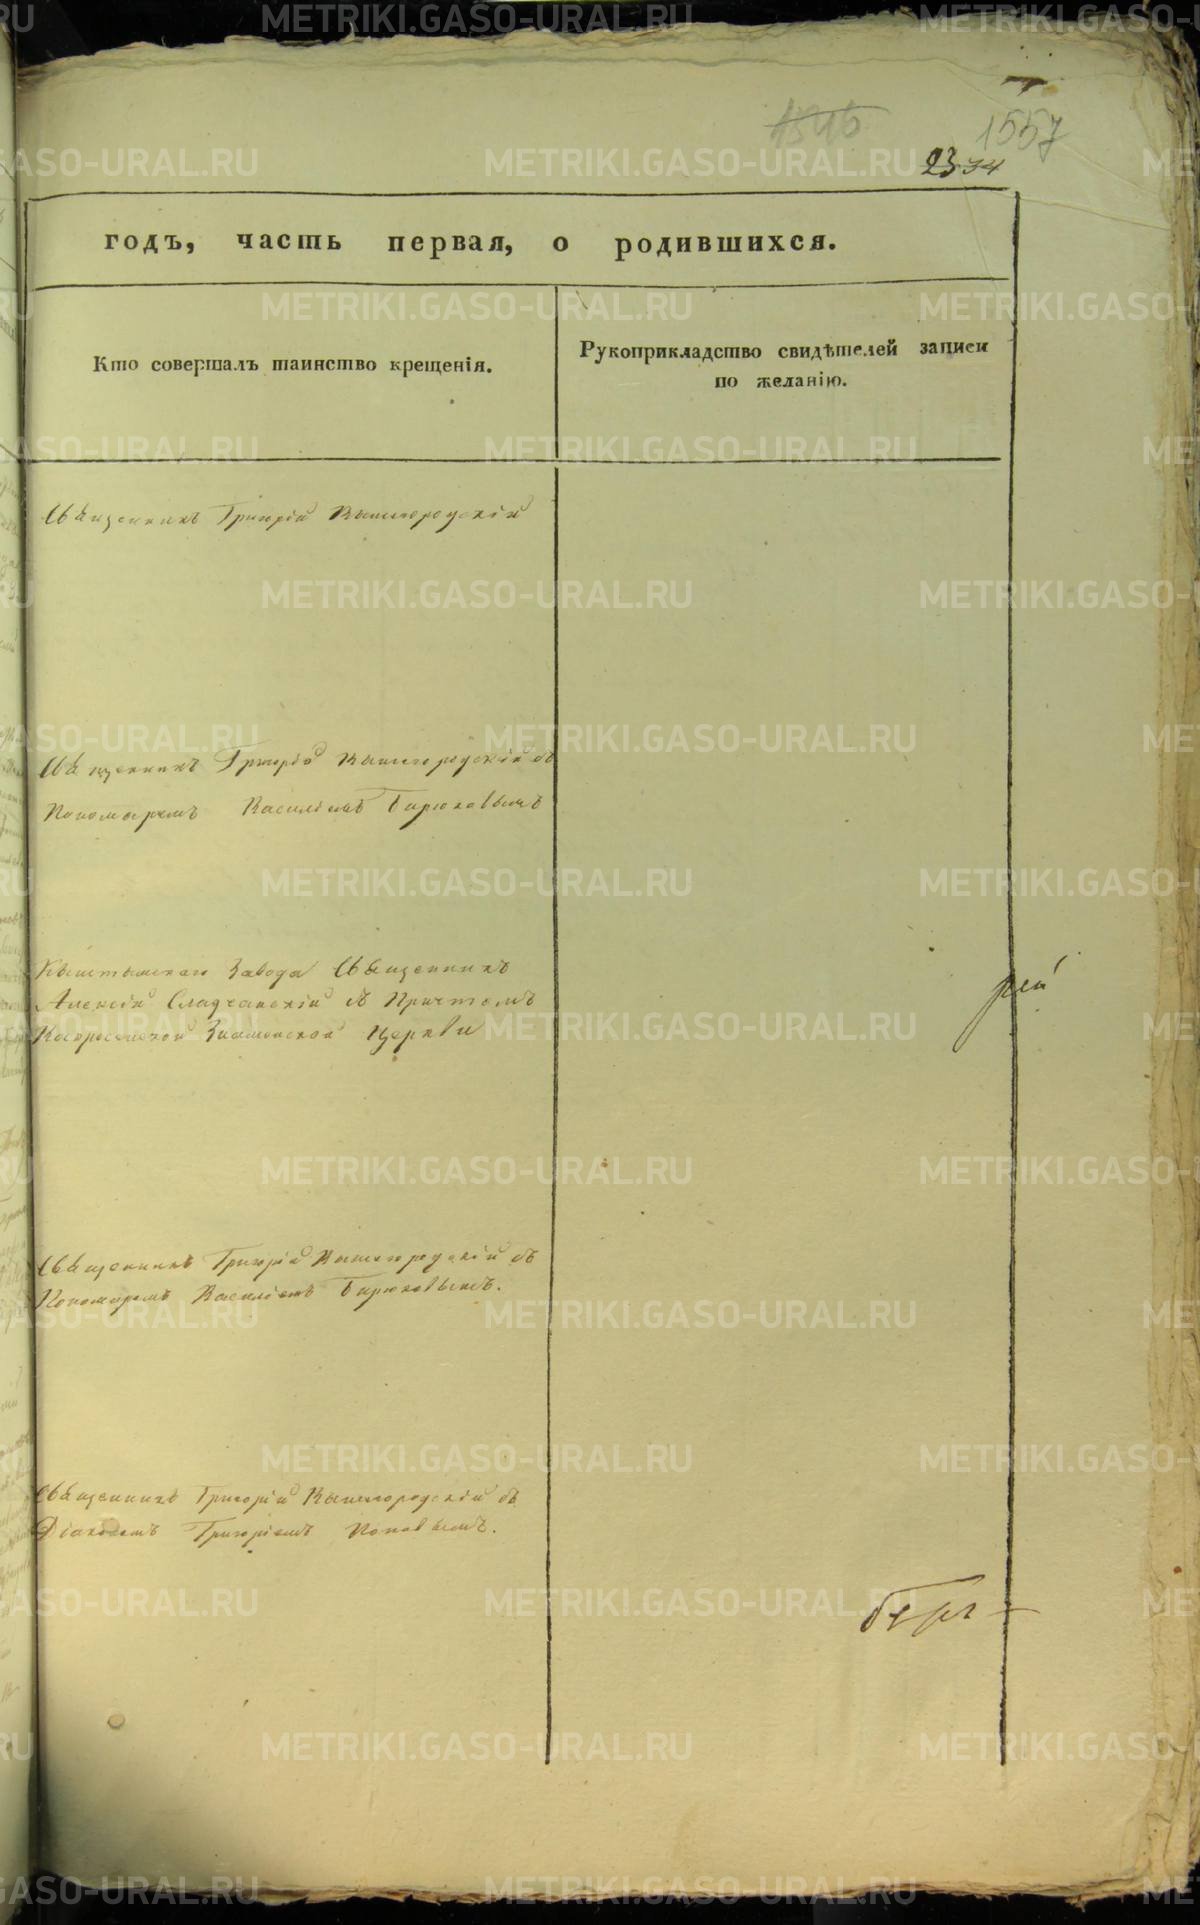 1546
1557
23 34
годъ, часть первая, о родившихся.
Кто совершалъ таинство крещенія.
Рукоприкладство свидѣтелей записи
по желанію.
Священникъ Григорій Вышегородскій
Священникъ Григорій Вышегородскій съ
Пономаремъ Василіемъ Бирюковымъ
Кыштымскаго Завода Священникъ
Алексій Сладчанскій съ Причтомъ
Знаменской Церкви
рей
Священникъ Григорій Вышегородскій съ
Пономаремъ Василіемъ Бирюковымъ.
Священникъ Григорій Вышегородскій съ
Діакономъ Григоріемъ Поповымъ.
METRIKI.GASO-URAL.RU